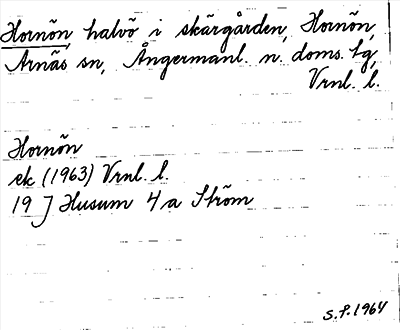 Hornön, halvö i skärgården, Hornön,
Arnäs sn, Ångermanl. n. doms. tg,
Vrnl. l.
Hornön
ek (1963) Vrnl. l.
19 J Husum 4 a Ström
S.P. 1964